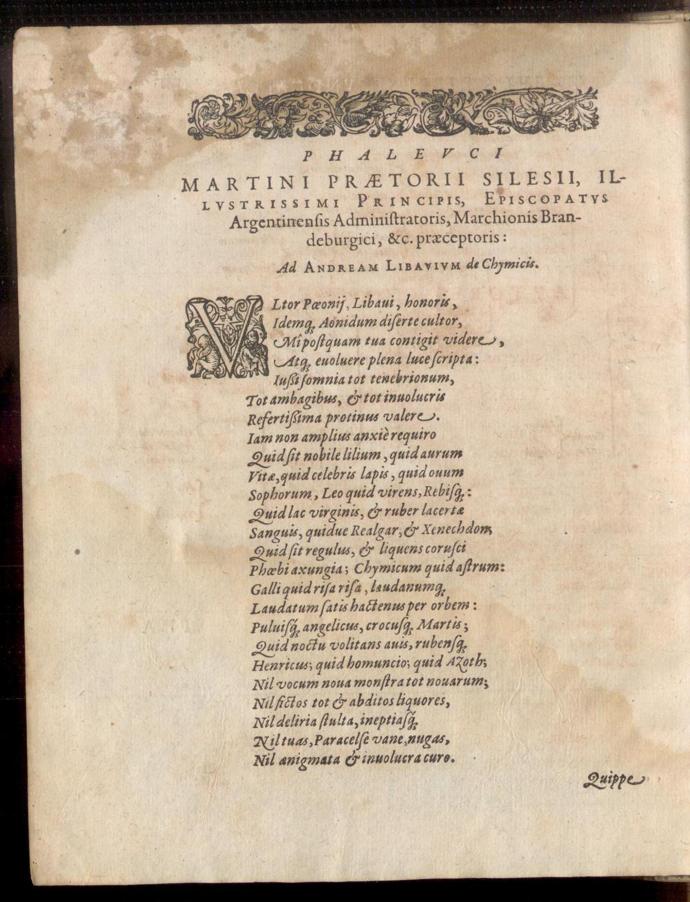 PHALEVCI
MARTINI PRÆTORII SILESII, IL-
LVSTRISSIMI PRINCIPIS, EPISCOPATVS
Argentinenſis Adminiſtratoris, Marchionis Bran-
deburgici, &c. præceptoris:
Ad ANDREAM LIBAVIVM de Chymicis.
VLtor Pæonij, Libaui, honoris,
Idemq́, Aonidum diſerte cultor,
Mi poſtquam tua contigit videre,
Atq́, euoluere plena luce ſcripta:
Iußi ſomnia tot tenebrionum,
Tot ambagibus, & tot inuolucris
Refertißima protinus valere.
Iam non amplius anxiè requiro
Quid ſit nobile lilium, quid aurum
Vitæ, quid celebris lapis, quid ouum
Sophorum, Leo quid virens, Rebiſq́;:
Quid lac virginis, & ruber lacertæ
Sanguis, quidue Realgar, & Xenechdon;
Quid ſit regulus, & liquens coruſci
Phœbi axungia; Chymicum quid aſtrum:
Galli quid riſa riſa, laudanumq́;
Laudatum ſatis hactenus per orbem:
Puluiſq́; angelicus, crocuſq́; Martis;
Quid noctu volitans auis, rubenſq́;
Henricus; quid homuncio; quid Azoth;
Nil vocum noua monſtra tot nouarum;
Nil fictos tot & abditos liquores,
Nil deliria ſtulta, ineptiaſq́;
Nil tuas, Paracelſe vane, nugas,
Nil ænigmata & inuolucra curo.
Quippe